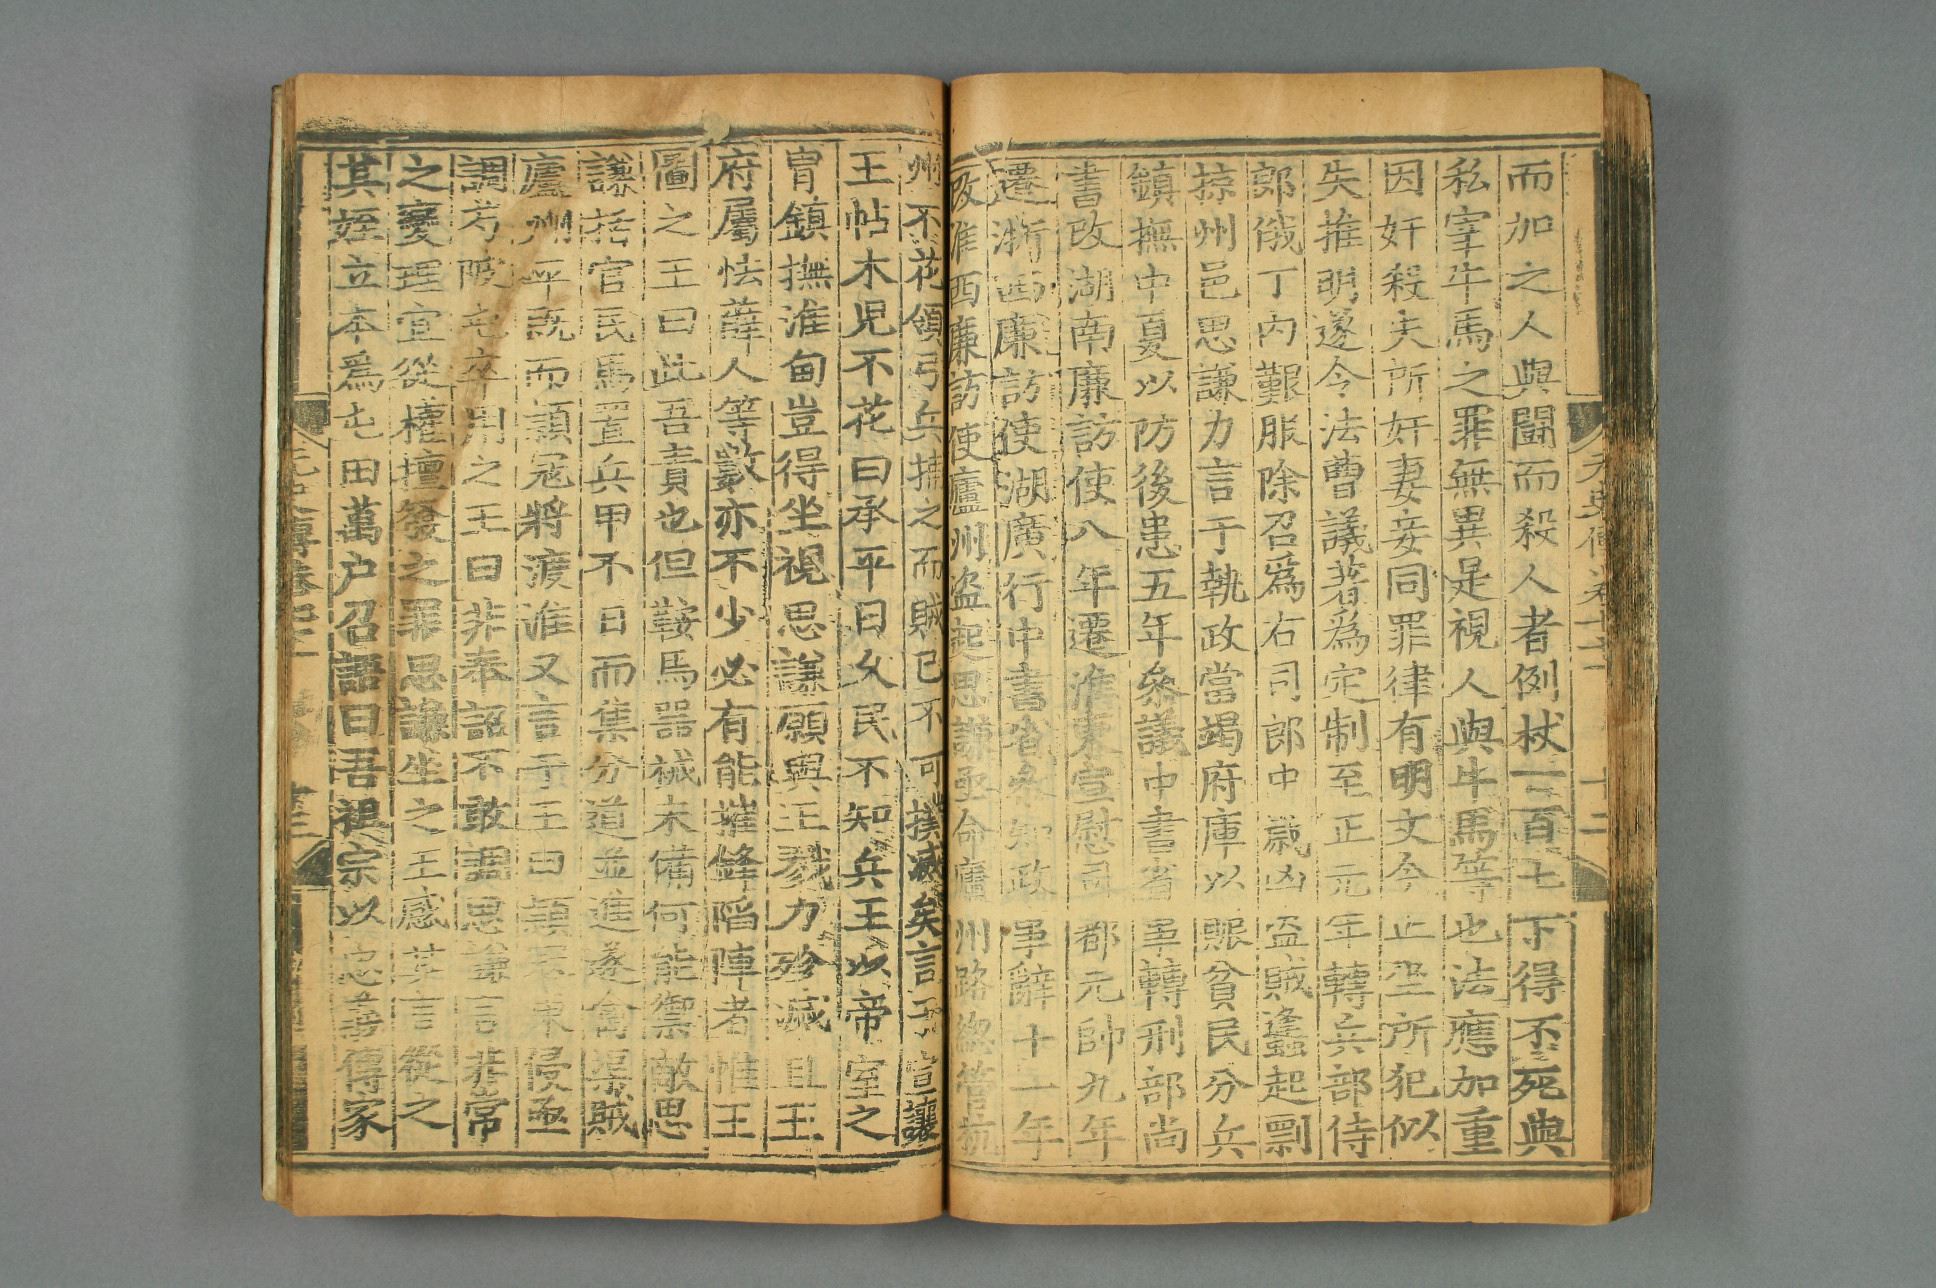 而加之人與鬪而殺人者例杖一百七下得不死與
私宰牛馬之罪無異是視人與牛馬等也法應加重
因奸殺夫所奸妻妾同罪律有明文今止坐所犯似
失推明遂令法曹議著為定制至正元年轉兵部侍
郎俄丁內艱服除召為右司郎中歲凶盜賊蠭起剽
掠州邑思謙力言于執政當竭府庫以賑貧民分兵
鎮撫中夏以防後患五年參議中書省事轉刑部尚
書改湖南廉訪使八年遷淮東宣慰司都元帥九年
遷浙西廉訪使湖廣行中書省參知政事辭十一年
改淮西廉訪使廬州盜起思謙亟命廬州路總管杭
州不花領弓兵捕之而賊已不可撲滅矣言于宣讓
王帖木兒不花曰承平日久民不知兵王以帝室之
胄鎮撫淮甸豈得坐視思謙願與王戮力殄滅且王
府屬怯薛人等數亦不少必有能摧鋒陷陣者惟王
圖之王曰此吾責也但鞍馬器械未備何能禦敵思
謙括官民馬置兵甲不日而集分道並進遂禽渠賊
廬州平既而潁冦將渡淮又言于王曰潁冦東侵亟
調芍陂屯卒用之王曰非奉詔不敢調思謙言非常
之變理宜從權擅發之罪思謙坐之王感其言從之
其姪立本為屯田萬户召語曰吾祖宗以忠義傳家
元史傳卷七十一
十二